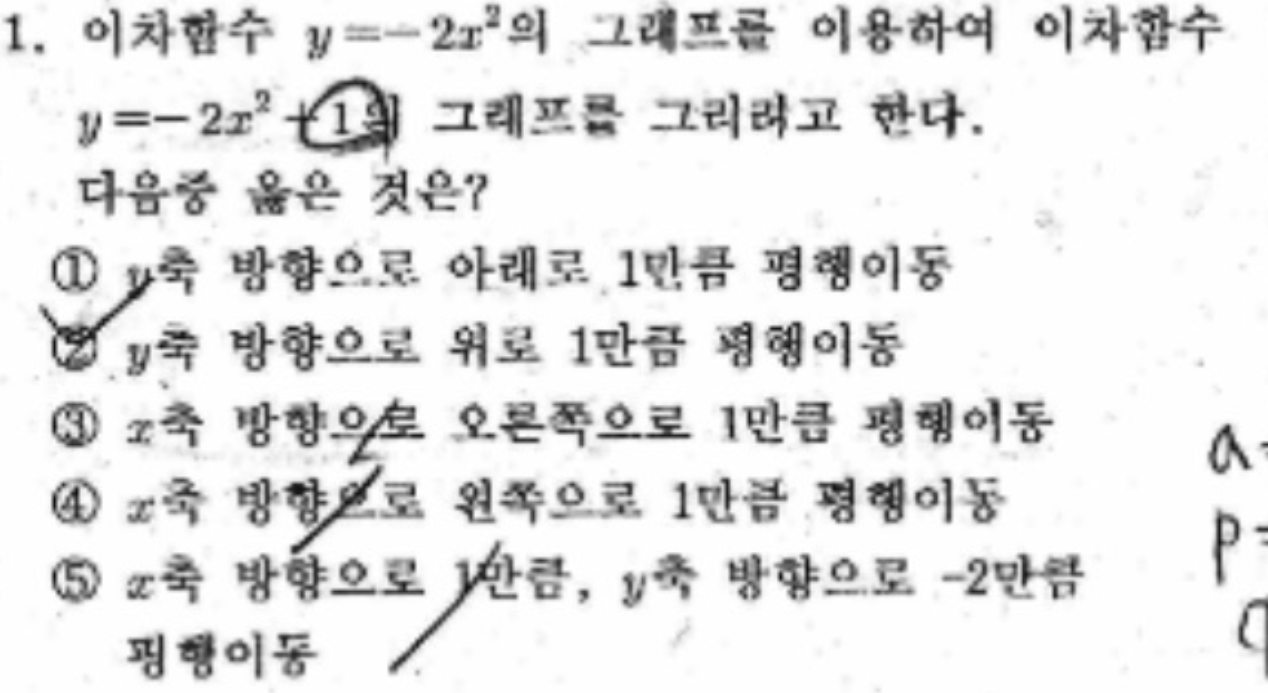 1. 이차함수 y=-2x²의 그래프를 이용하여 이차함수
y=-2x²+1의 그래프를 그리려고 한다.
다음중 옳은 것은?
① y축 방향으로 아래로 1만큼 평행이동
② y축 방향으로 위로 1만큼 평행이동
③ x축 방향으로 오른쪽으로 1만큼 평행이동
④ x축 방향으로 왼쪽으로 1만큼 평행이동
⑤ x축 방향으로 1만큼, y축 방향으로 -2만큼
평행이동
a=
p=
q